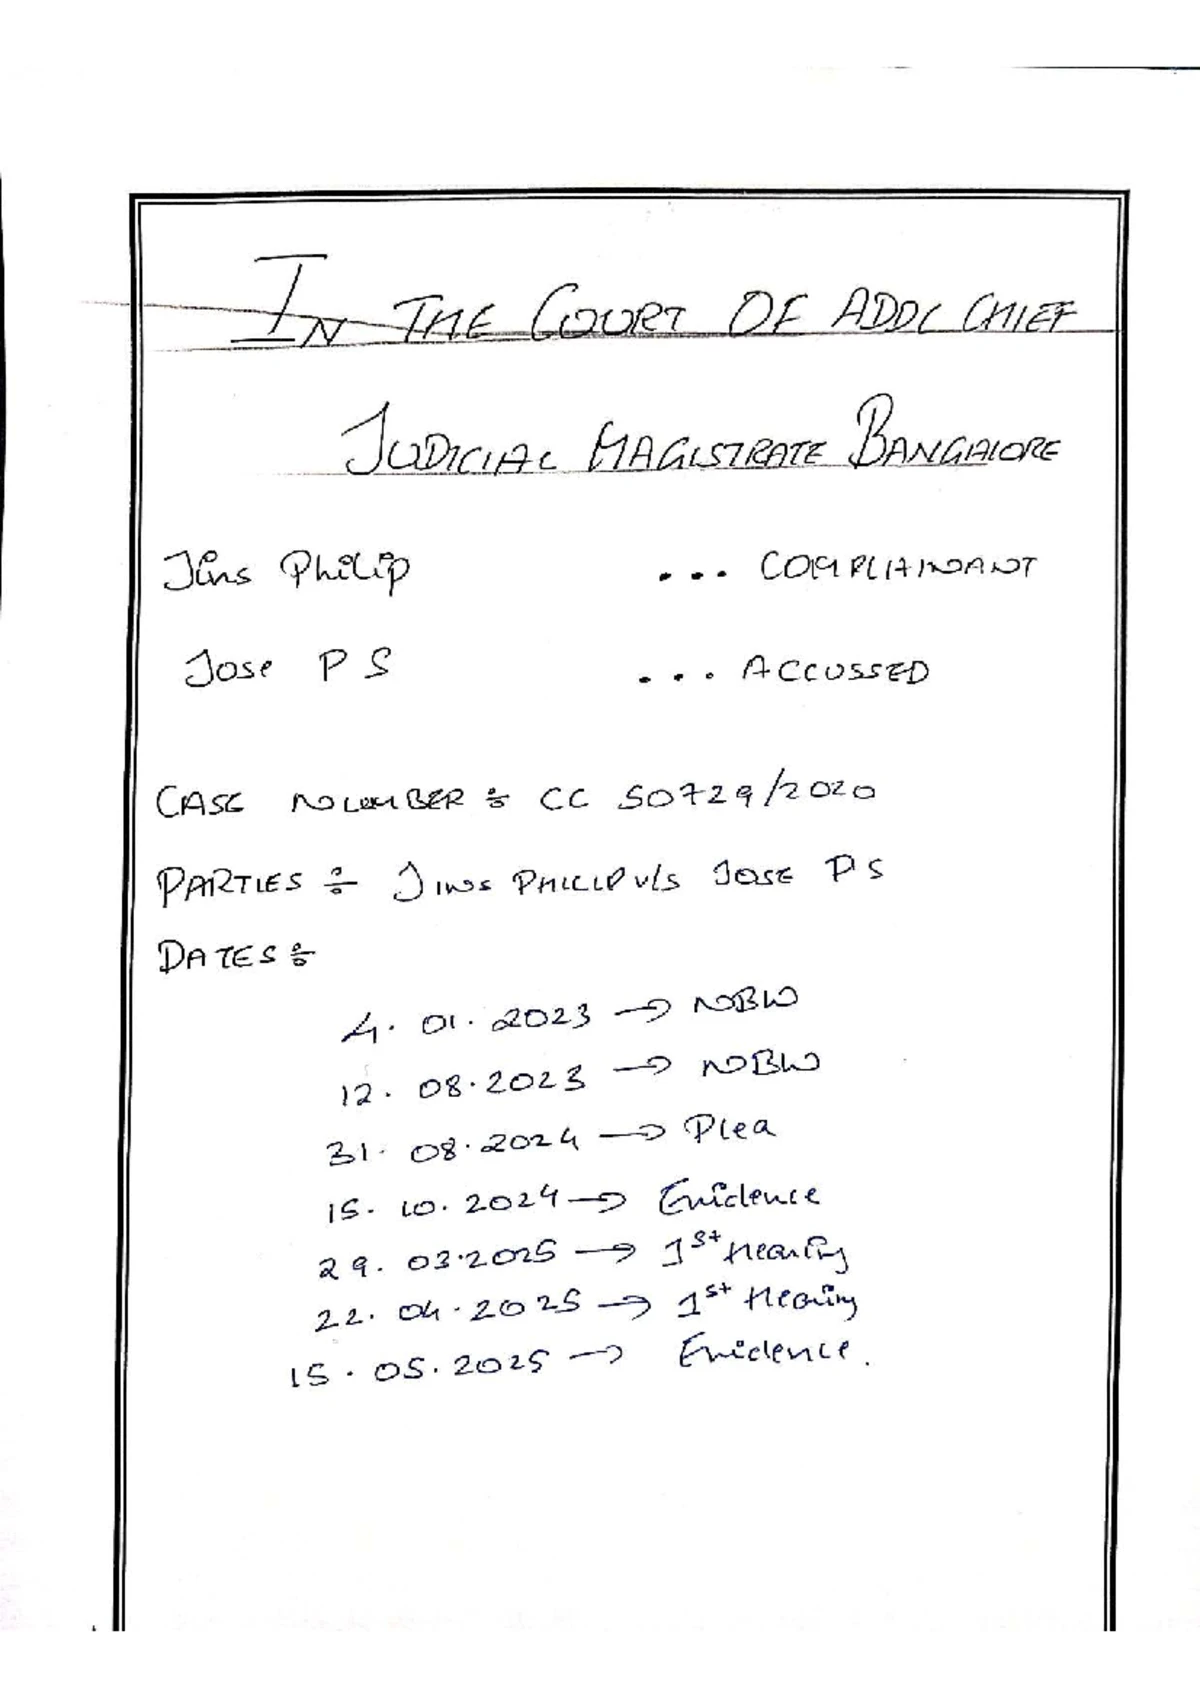 IN THE COURT OF ADDL CHIEF
JUDICIAL MAGISTRATE BANGALORE
Jins Philip ... COMPLAINANT
Jose P S ... ACCUSSED
CASE NUMBER : CC 50729/2020
PARTIES :- JINS PHILIP v/s JOSE P S
DATES :-
4. 01. 2023 → NBW
12. 08. 2023 → NBW
31. 08. 2024 → Plea
15. 10. 2024 → Evidence
29. 03. 2025 → 1st Hearing
22. 04. 2025 → 1st Hearing
15. 05. 2025 → Evidence.